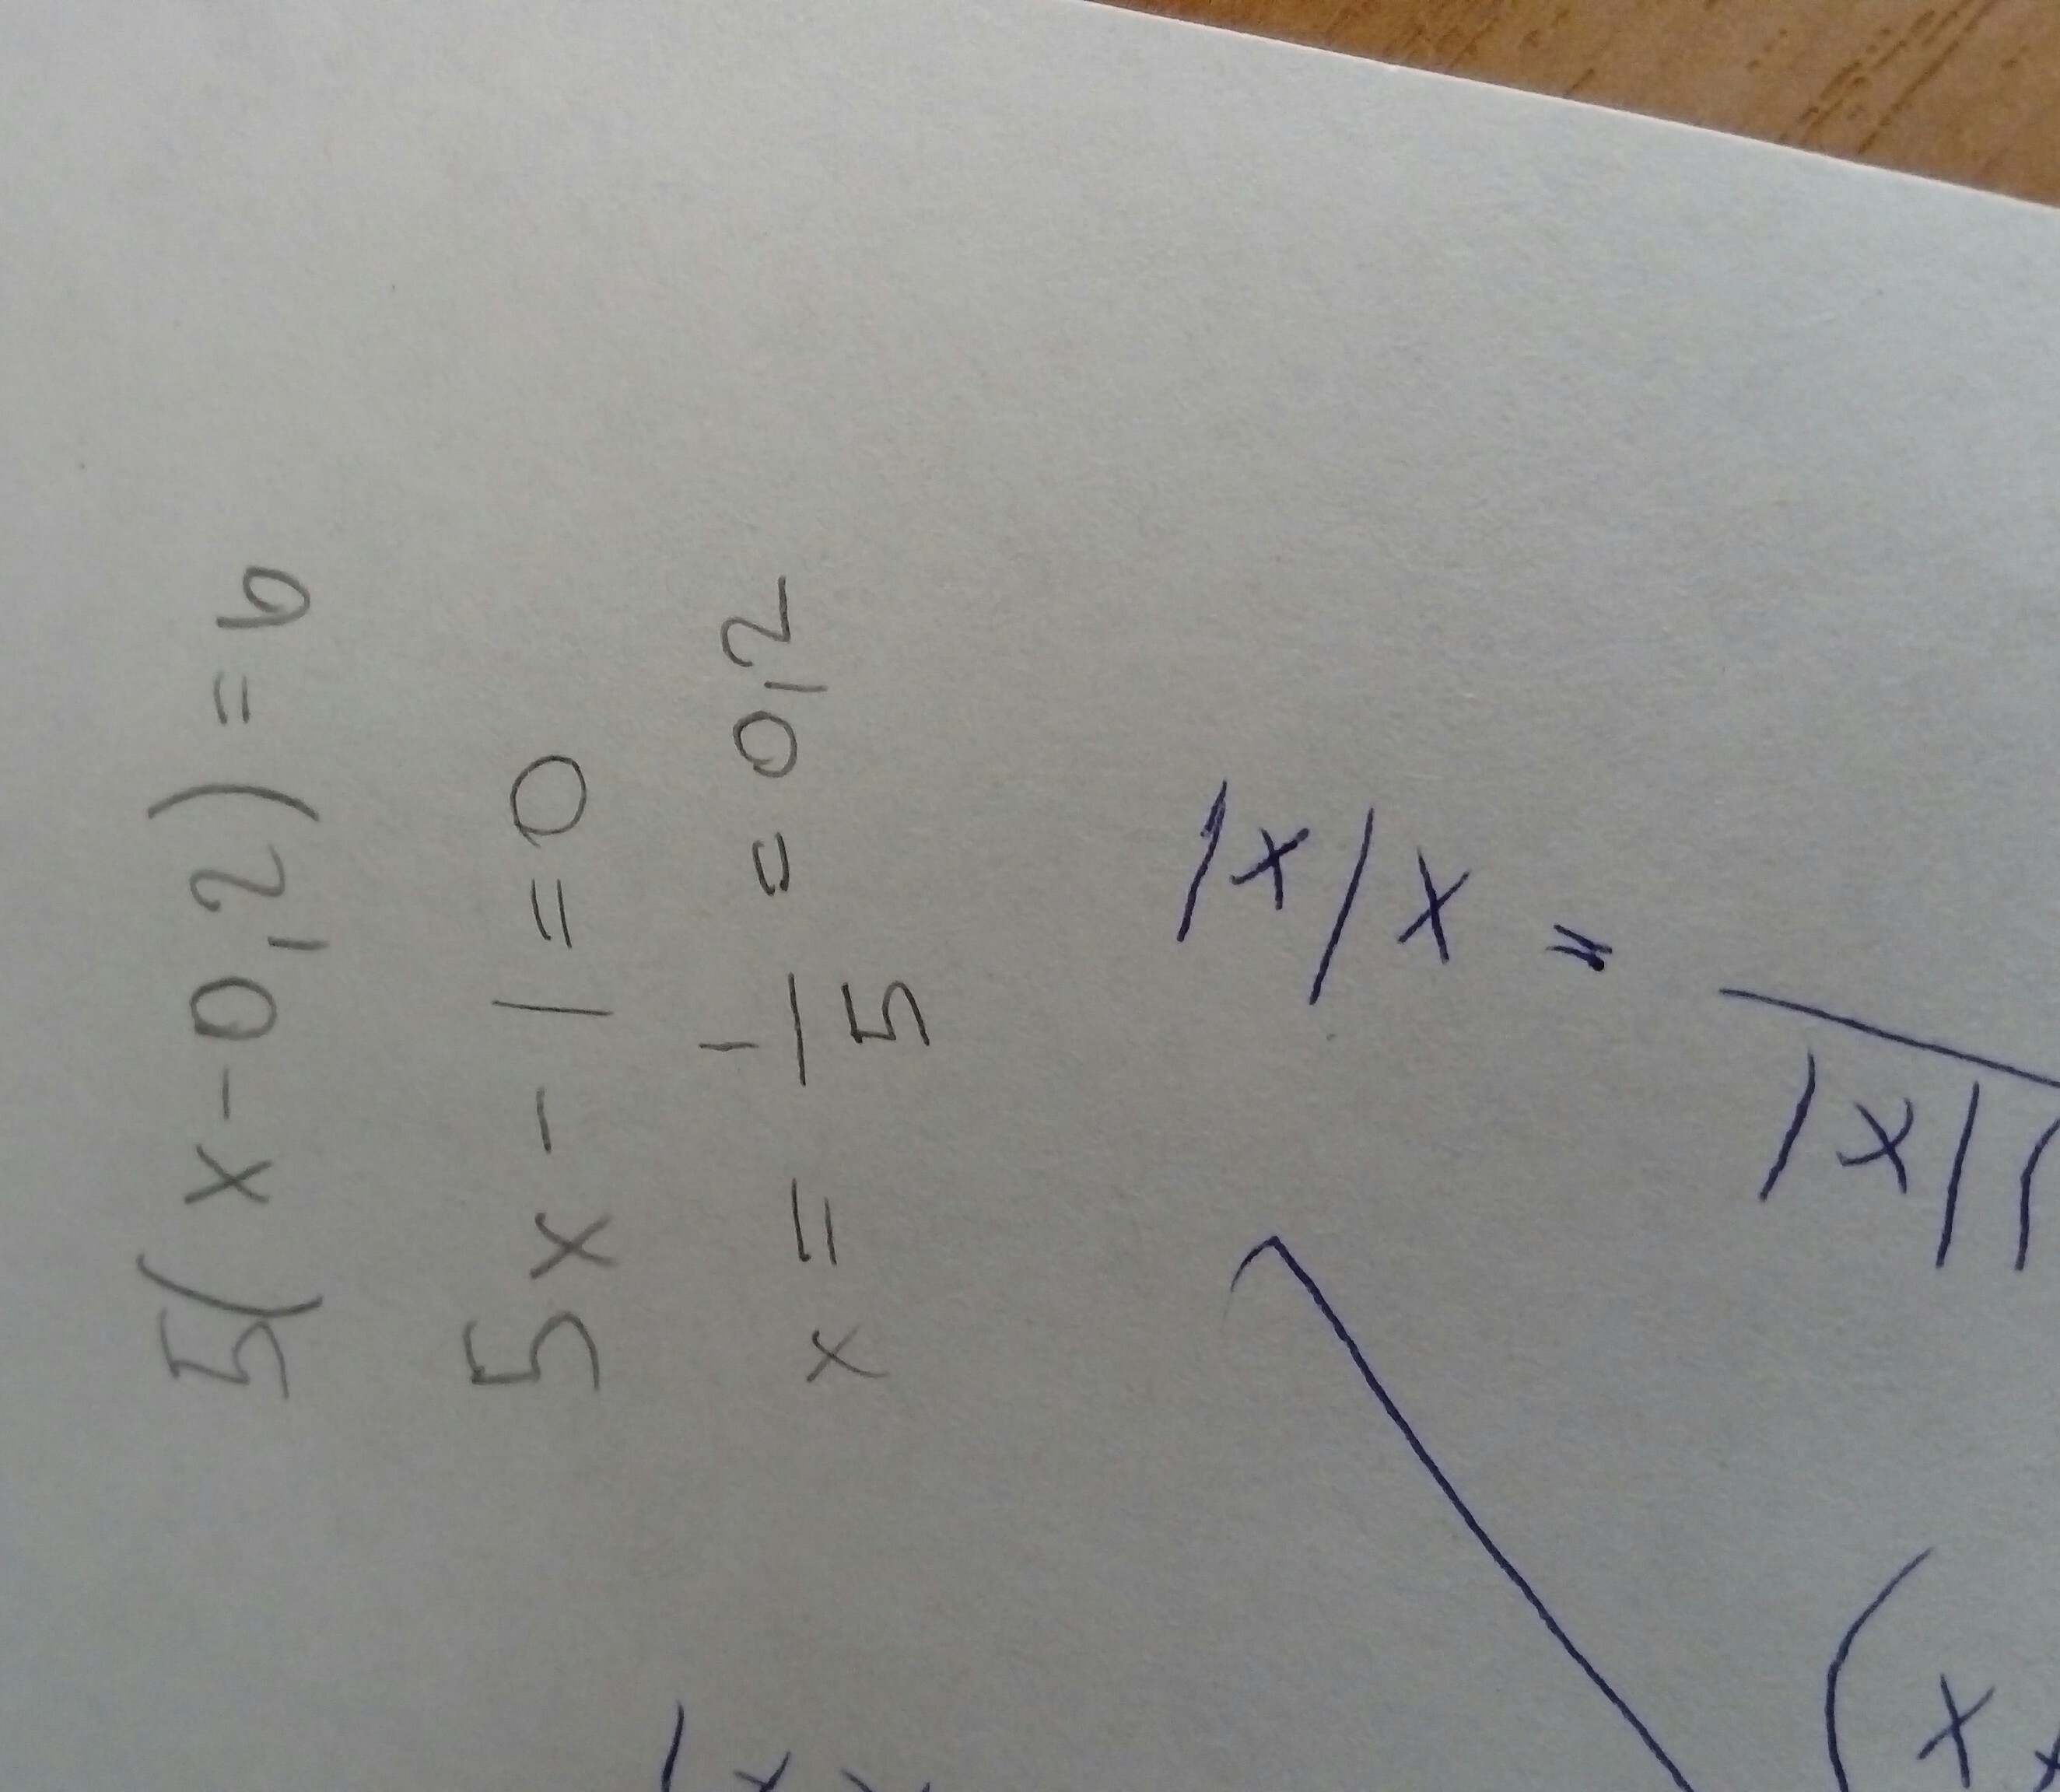 5(x-0,2)=0
5x-1=0
x=1/5=0,2
|x|x=
|x|(
(x